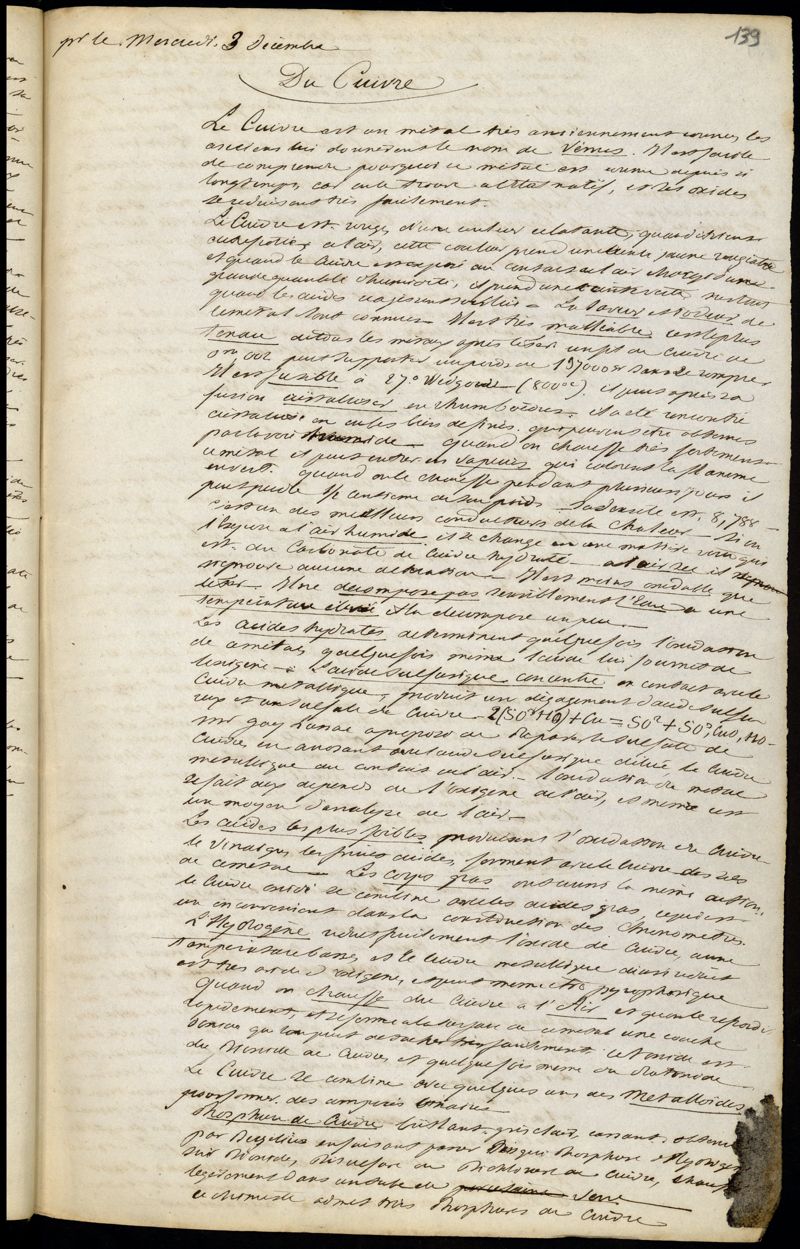 139
pr le Mercredi 3 Décembre
Du Cuivre
Le Cuivre est un métal très anciennement connu, les
anciens lui donnèrent le nom de Vénus. Il est facile
de comprendre pourquoi ce métal est connu depuis si
longtemps, car on le trouve à l'Etat natif, et ses oxides
se réduisent très facilement.
Le Cuivre est rouge, d'une couleur éclatante, quand il est
à l'air, cette couleur prend une teinte jaune rougeâtre
et quand le Cuivre est exposé au contact de l'air chargé d'une
grande quantité d'humidité, il prend une surtout
quand les acides agissent sur lui - La saveur et l'odeur de
ce métal sont connues - Il est très malléable, c'est le plus
tenace de tous les métaux après le fer un fil de Cuivre de
0m,002 peut supporter un poids de 137000 gr sans se rompre.
Il est fusible à 27° Wedgood - (800°c). il peut après sa
fusion cristalliser en rhomboèdres - il a été rencontré
cristallisé en cubes bien définis qui peuvent être obtenus
par la voie humide - quand on chauffe très fortement
ce métal il peut entrer en vapeurs qui colorent la flamme
en vert. quand on le chauffe pendant plusieurs jours il
peut perdre 1/2 centième de son poids - Sa densité est 8,788 -
c'est un des meilleurs conducteurs de la Chaleur - Si on
l'expose à l'air humide, il se change en une matière verte qui
est du Carbonate de Cuivre hydraté - à l'air sec il
n'éprouve aucune altération - Il est moins oxidable que
le fer - Il ne décompose pas sensiblement l'Eau à une
température élevée il la décompose un peu.
Les acides hydratés déterminent quelquefois l'oxidation
de ce métal, quelquefois même l'acide lui fournit de
l'oxigène - L'acide sulfurique concentré en contact avec le
Cuivre métallique, produit un dégagement d'acide sulfu
reux et un sulfate de Cuivre - 2(SO³HO) + Cu = SO² + SO³, CuO, HO -
Mr Gay Lussac a proposé de préparer le sulfate de
Cuivre, en arrosant avec l'acide sulfurique dilué le Cuivre
métallique au contact de l'air - l'oxidation du métal
se fait aux dépends de l'oxigène de l'air, et même c'est
un moyen d'analyse de l'air -
Les acides les plus faibles produisent l'oxidation du Cuivre -
le vinaigre, les acides, forment avec le Cuivre des sels
de ce métal - Les corps gras ont aussi la même action,
le Cuivre oxidé se combine avec les acides gras, ce qui est
un inconvénient dans la construction des Chronomètres.
L'Hydrogène réduit facilement l'oxide de Cuivre, à une
température basse, et le Cuivre métallique ainsi réduit
est très avide d'oxigène, et peut même être pyrophorique
Quand on chauffe du Cuivre à l'Air et qu'on le refroidit
rapidement, il se forme à la surface de ce métal une couche
qu'on peut détacher très facilement cet oxide est
du Bioxide de Cuivre, et quelquefois même du Protoxide -
Le Cuivre se combine avec quelques uns des Métalloïdes
pour former des composés binaires
Phosphure de Cuivre brillant, gris clair, cassant, obtenu
par Berzélius en faisant passer Phosphore Hydrogéné
sur Bioxide, Bisulfure ou Bichlorure de Cuivre, chauffé
légèrement dans un tube de verre
ce chimiste admet trois Phosphures de Cuivre